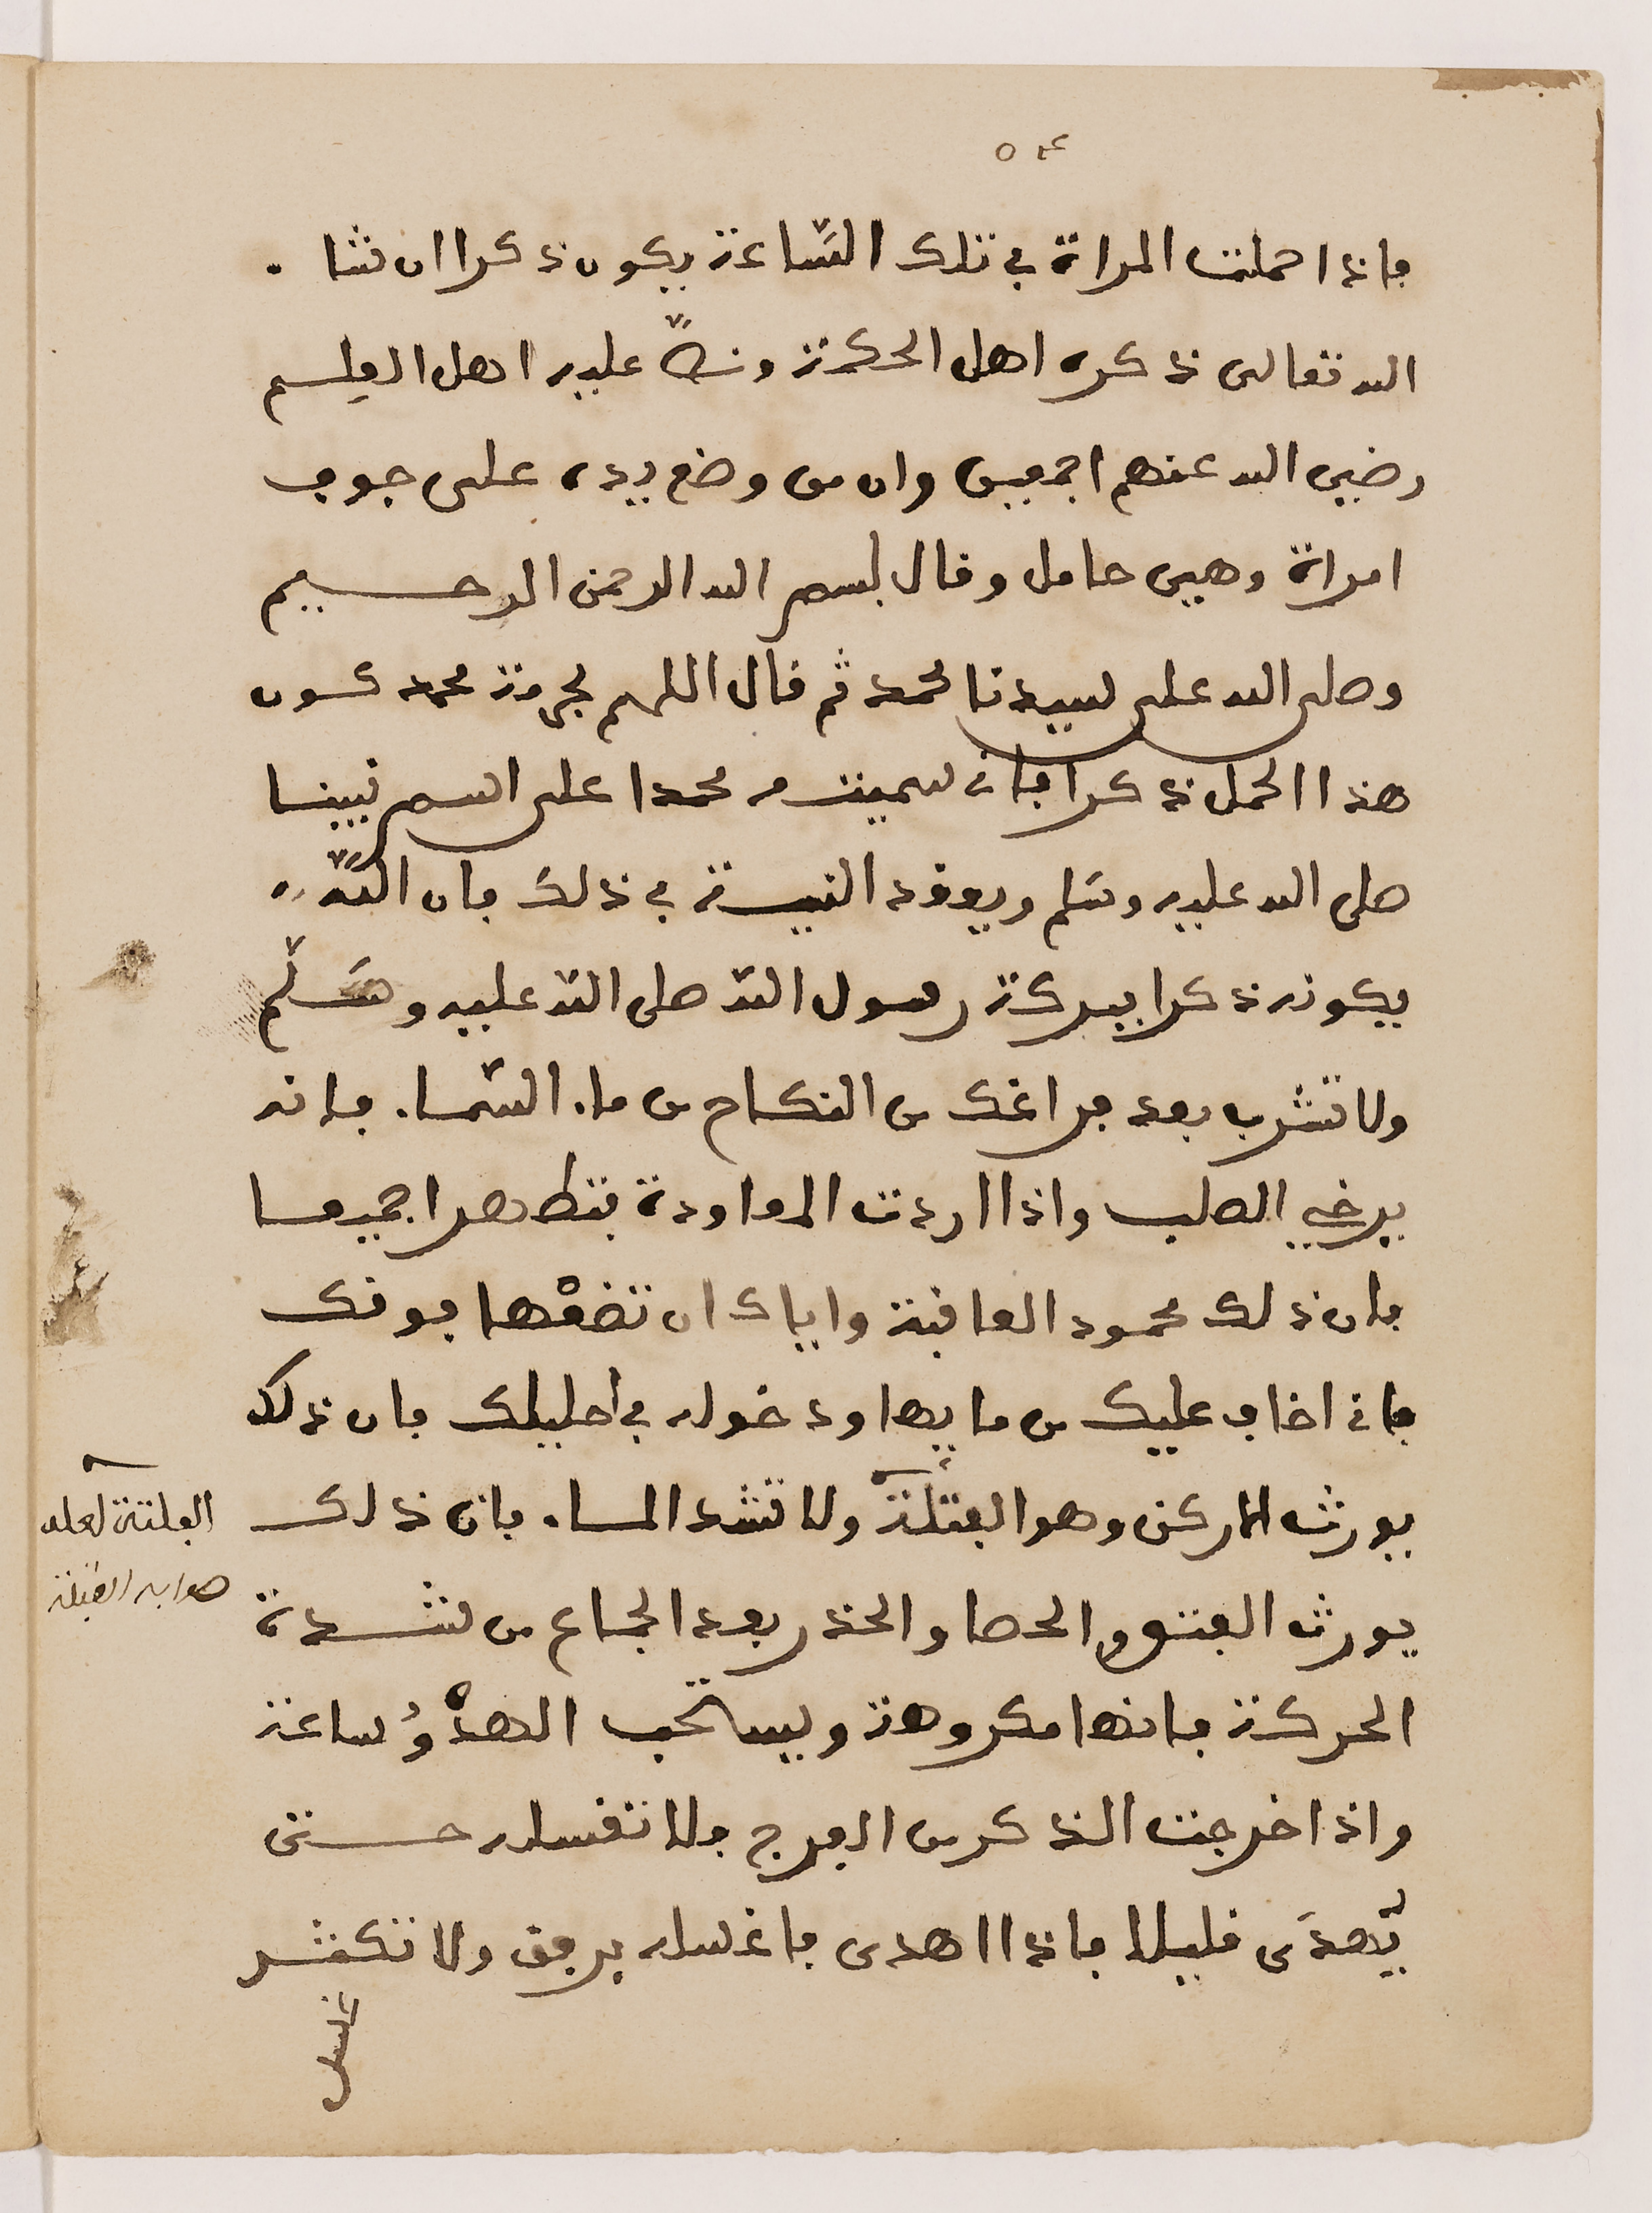 ٥٤
فاذا حملت المراة في تلك السّاعة يكون ذكرا ان شا
الله تعالى ذكره اهل الحكمة ونصّ عليه اهل العلم
رضي الله عنهم اجمعين وان من وضع يده على جوف
امراة وهي حامل وقال بسم الله الرحمن الرحيم
وصلى الله على سيدنا محمد ثم قال اللهم بحرمة محمد كون
هذا الحمل ذكرا فان سميته محمدا على اسم نبينا
صلى الله عليه وسلم ويوقد النية في ذلك فان اللّه
يكونه ذكرا ببركة رسول الله صلى الله عليه وسلّم
ولا تشرب بعد فراغك من النكاح من ماء السّماء فانه
يرخي الصلب واذا اردت المعاودة فتطهرا جميعا
فان ذلك محمود العاقبة واياك ان تضعْها فوقك
فاني اخاف عليك من مايها ودخوله في احليلك فان ذلك
يورث المركن وهو الفتلة ولا تشد الماء فان ذلك
يورث الفتو والحصا والحذر بعد الجماع من شدة
الحركة فانها مكروهة ويستحب الهدْوُ ساعة
واذا اخرجت الذكر من الفرج فلا تغسله حتى
يّهدَى قليلا فاذا اهدى فاغسله برفق ولا تكثر
غسل
الفلتة لعله
صوابه القيلة